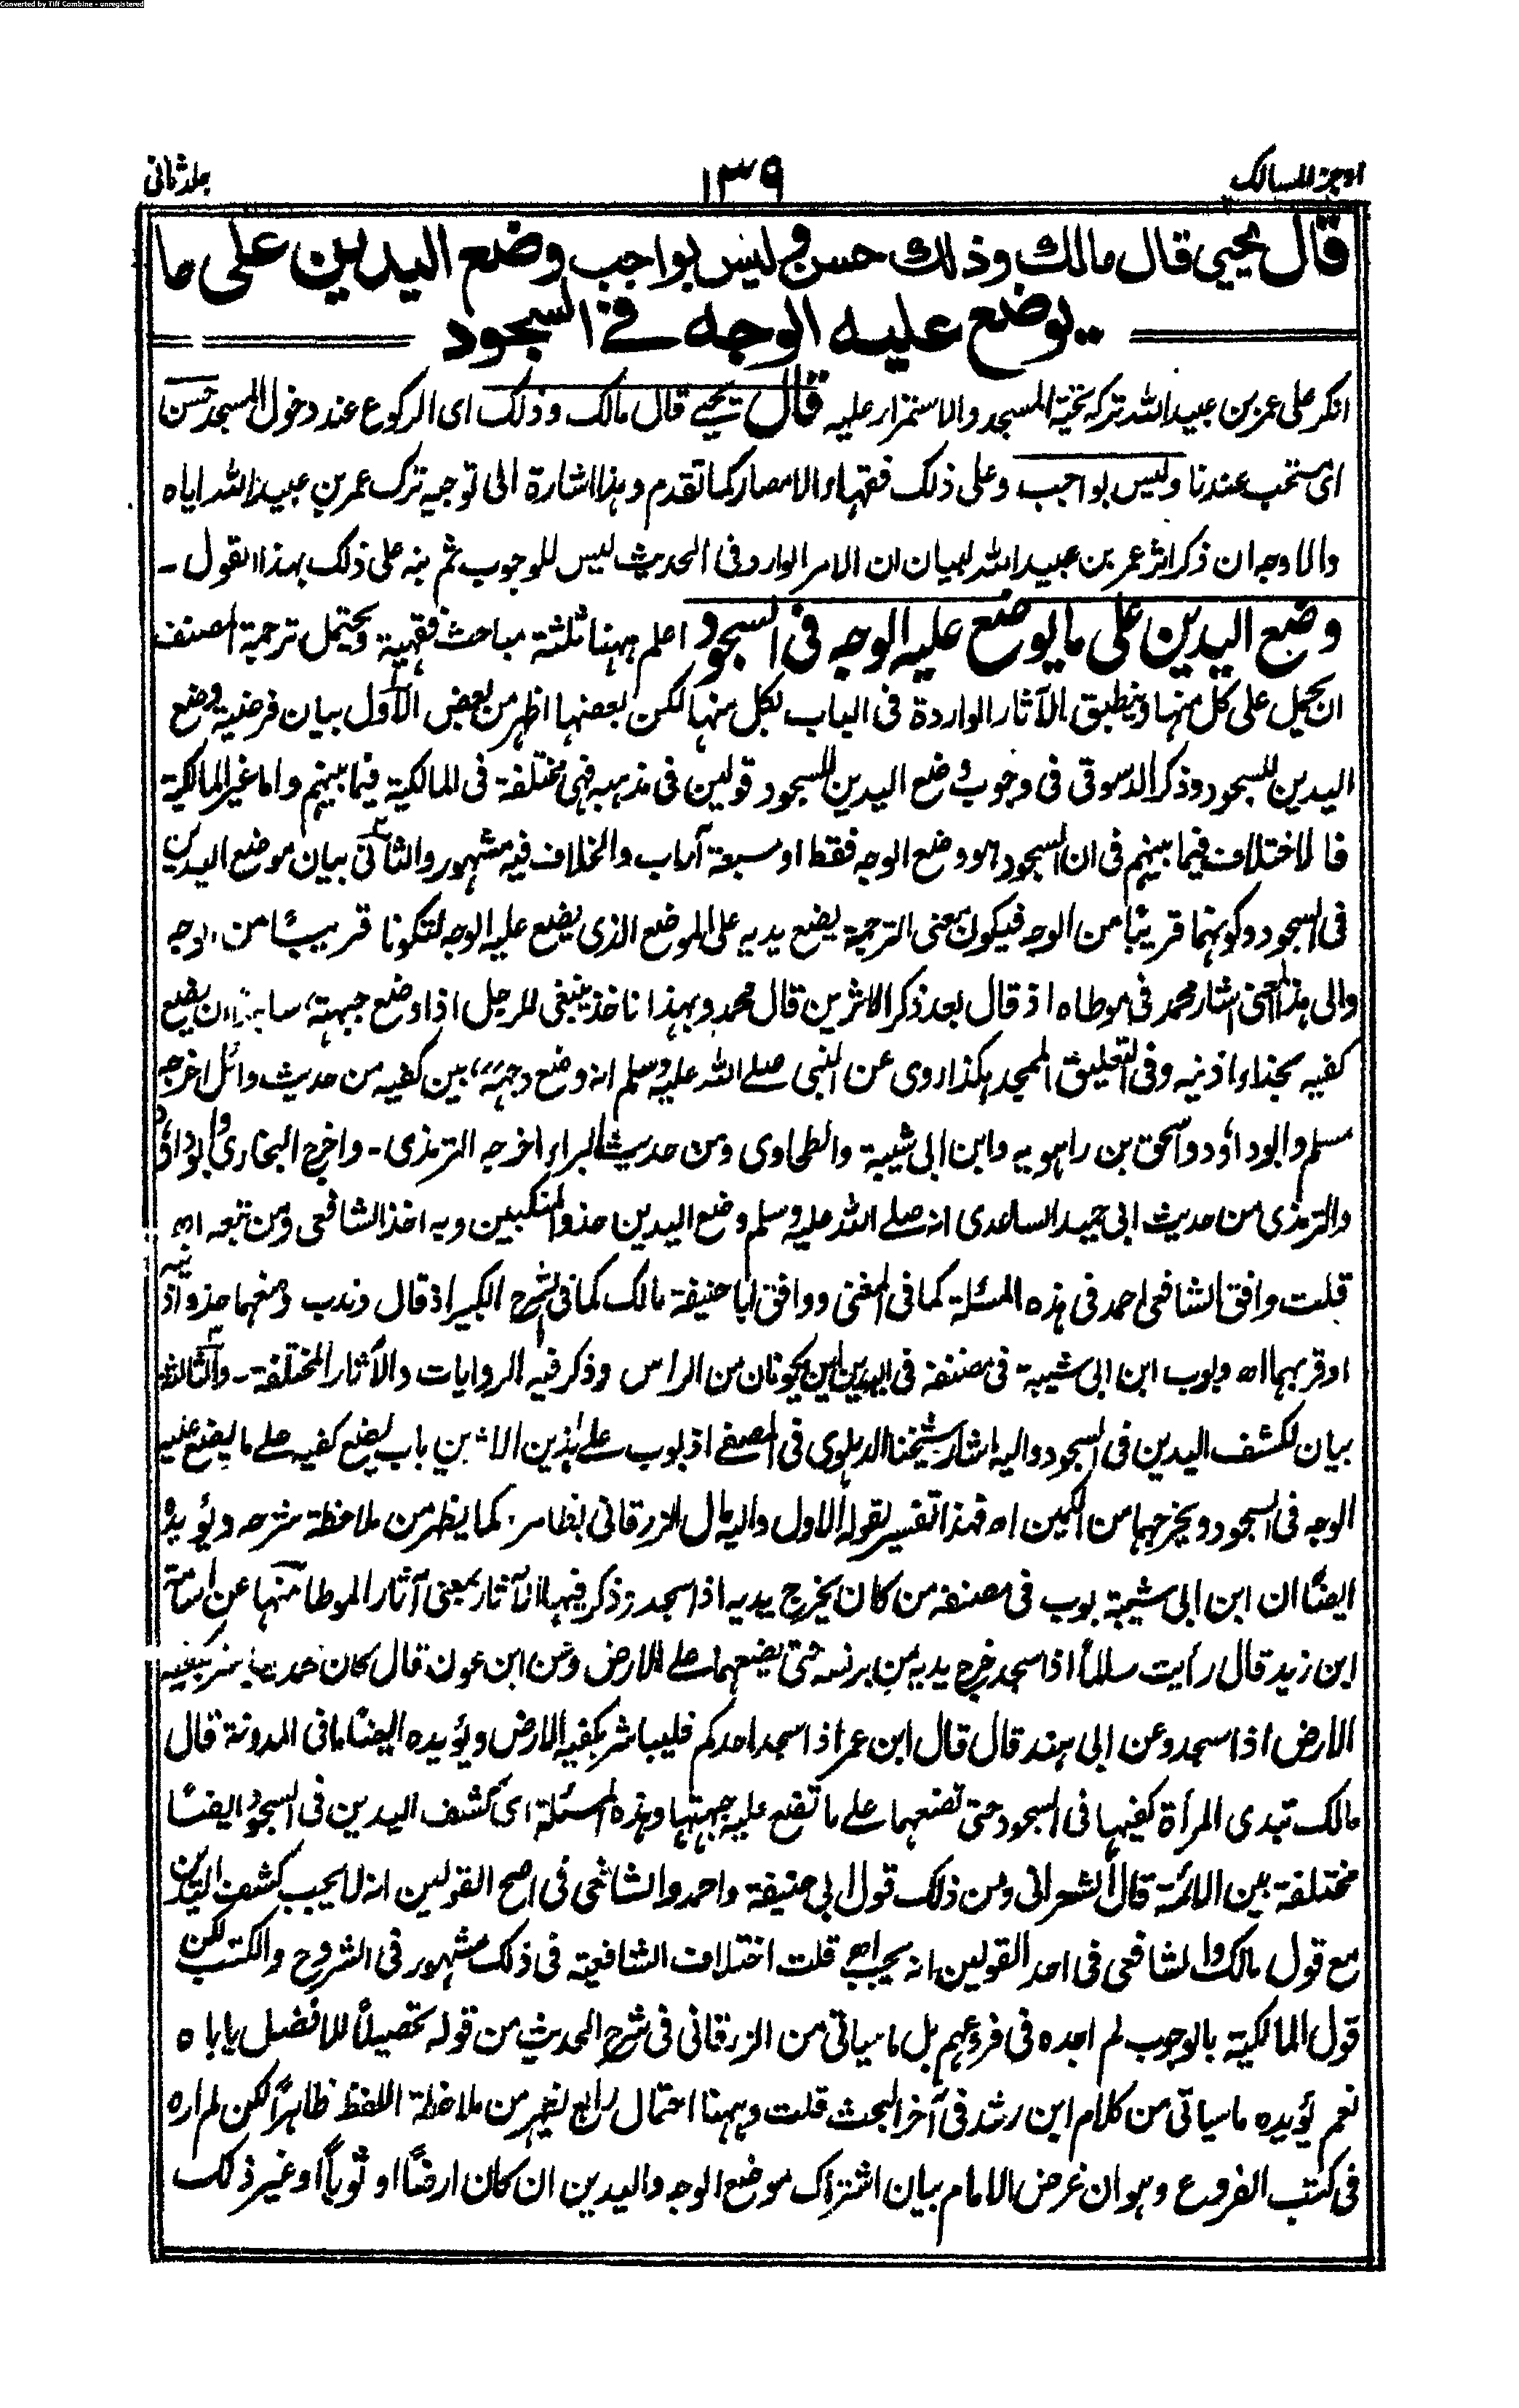 Converted by Tiff Combine - unregistered
اوجز المسالك ١٣٩ جلد ثانى
قال يحيى قال مالك وذلك حسن وليس بواجب وضع اليدين على ما
يوضع عليه الوجه فى السجود
انكر على عمر بن عبيد الله تركه تحية المسجد والاستمرار عليه قال يحيے قال مالك وذلك اى الركوع عند دخول المسجد حسن
اى مستحب عندنا وليس بواجب وعلى ذلك فقهاء الامصار كما تقدم وهذا اشارة الى توجيه ترك عمر بن عبيد الله اياه
والاوجه ان ذكر اثر عمر بن عبيد الله لبيان ان الامر الوارد فى الحديث ليس للوجوب ثم نبه على ذلك بهذا القول -
وضع اليدين على ما يوضع عليه الوجه فى السجود اعلم ههنا ثلثة مباحث فقهية ويحتمل ترجمة المصنف
ان يحمل على كل منها وينطبق الآثار الواردة فى الباب بكل منها لكن بعضها اظهر من بعض الاول بيان فرضية وضع
اليدين للسجود وذكر الدسوقى فى وجوب وضع اليدين للسجود قولين فى مذهبه فهى مختلفة فى المالكية فيما بينهم واما غير المالكية
فالاختلاف فيما بينهم فى ان السجود هو وضع الوجه فقط او سبعة آراب والخلاف فيه مشهور والثانى بيان موضع اليدين
فى السجود وكونهما قريبًا من الوجه فيكون معنى الترجمة يضع يديه على الموضع الذى يضع عليه الوجه لتكونا قريبًا من الوجه
والى هذا المعنى اشار محمد فى موطاه اذ قال بعد ذكر الاثرين قال محمد وبهذا ناخذ ينبغى للرجل اذا وضع جبهته ساجدا ان يضع
كفيه بحذاء اذنيه وفى التعليق الممجد هكذا روى عن النبى صلے الله عليه وسلم انه وضع وجهه بين كفيه من حديث وائل اخرجه
مسلم وابو داؤد واسحق بن راهويه وابن ابى شيبة والطحاوى ومن حديث البراء اخرجه الترمذى - واخرج البخارى وابو داؤد
والترمذى من حديث ابى حميد الساعدى انه صلے الله عليه وسلم وضع اليدين حذو المنكبين وبه اخذ الشافعى ومن تبعه اھ
قلت وافق الشافعى احمد فى هذه المسئلة كما فى المغنى ووافق ابا حنيفة مالك كما فى الشرح الكبير اذ قال وندب وضعهما حذو اذنيه
او قربهما اھ وبوب ابن ابى شيبة فى مصنفه فى اليدين اين يكونان من الراس وذكر فيه الروايات والآثار المختلفة - والثالث
بيان لكشف اليدين فى السجود واليه اشار شيخنا الدهلوى فى المصفے اذ بوب علے هذين الاثرين باب يضع كفيه علے ما يضع عليه
الوجه فى السجود ويخرجهما من الكمين اھ فهذا تفسير لقوله الاول واليه مال الزرقانى بظاهره كما يظهر من ملاحظة شرحه ويؤيده
ايضًا ان ابن ابى شيبة بوب فى مصنفه من كان يخرج يديه اذا سجد وذكر فيها الآثار بمعنى آثار الموطا منها عن اسامة
ابن زيد قال رأيت سالمًا اذا سجد خرج يديه من برنسه حتى يضعهما علے الارض وعن ابن عون قال كان محمد يباشر بكفيه
الارض اذا سجد وعن ابى هند قال قال ابن عمر اذا سجد احدكم فليباشر بكفيه الارض ويؤيده ايضًا ما فى المدونة قال
مالك تبدى المرأة كفيها فى السجود حتى تضعهما علے ما تضع عليه جبهتها وهذه المسئلة اى كشف اليدين فى السجود ايضًا
مختلفة بين الائمة قال الشعرانى ومن ذلك قول ابى حنيفة واحمد والشافعى فى اصح القولين انه لا يجب كشف اليدين
مع قول مالك والشافعى فى احد القولين انه يجب اھ قلت اختلاف الشافعية فى ذلك مشهور فى الشروح والكتب لكن
قول المالكية بالوجوب لم اجده فى فروعهم بل ما سياتى من الزرقانى فى شرح الحديث من قوله تحصيلًا للافضل ياباه
نعم يؤيده ما سياتى من كلام ابن رشد فى آخر البحث قلت وههنا احتمال رابع يظهر من ملاحظة اللفظ ظاهرًا لكن لم اره
فى كتب الفروع وهو ان غرض الامام بيان اشتراك موضع الوجه واليدين ان كان ارضًا او ثوبًا او غير ذلك